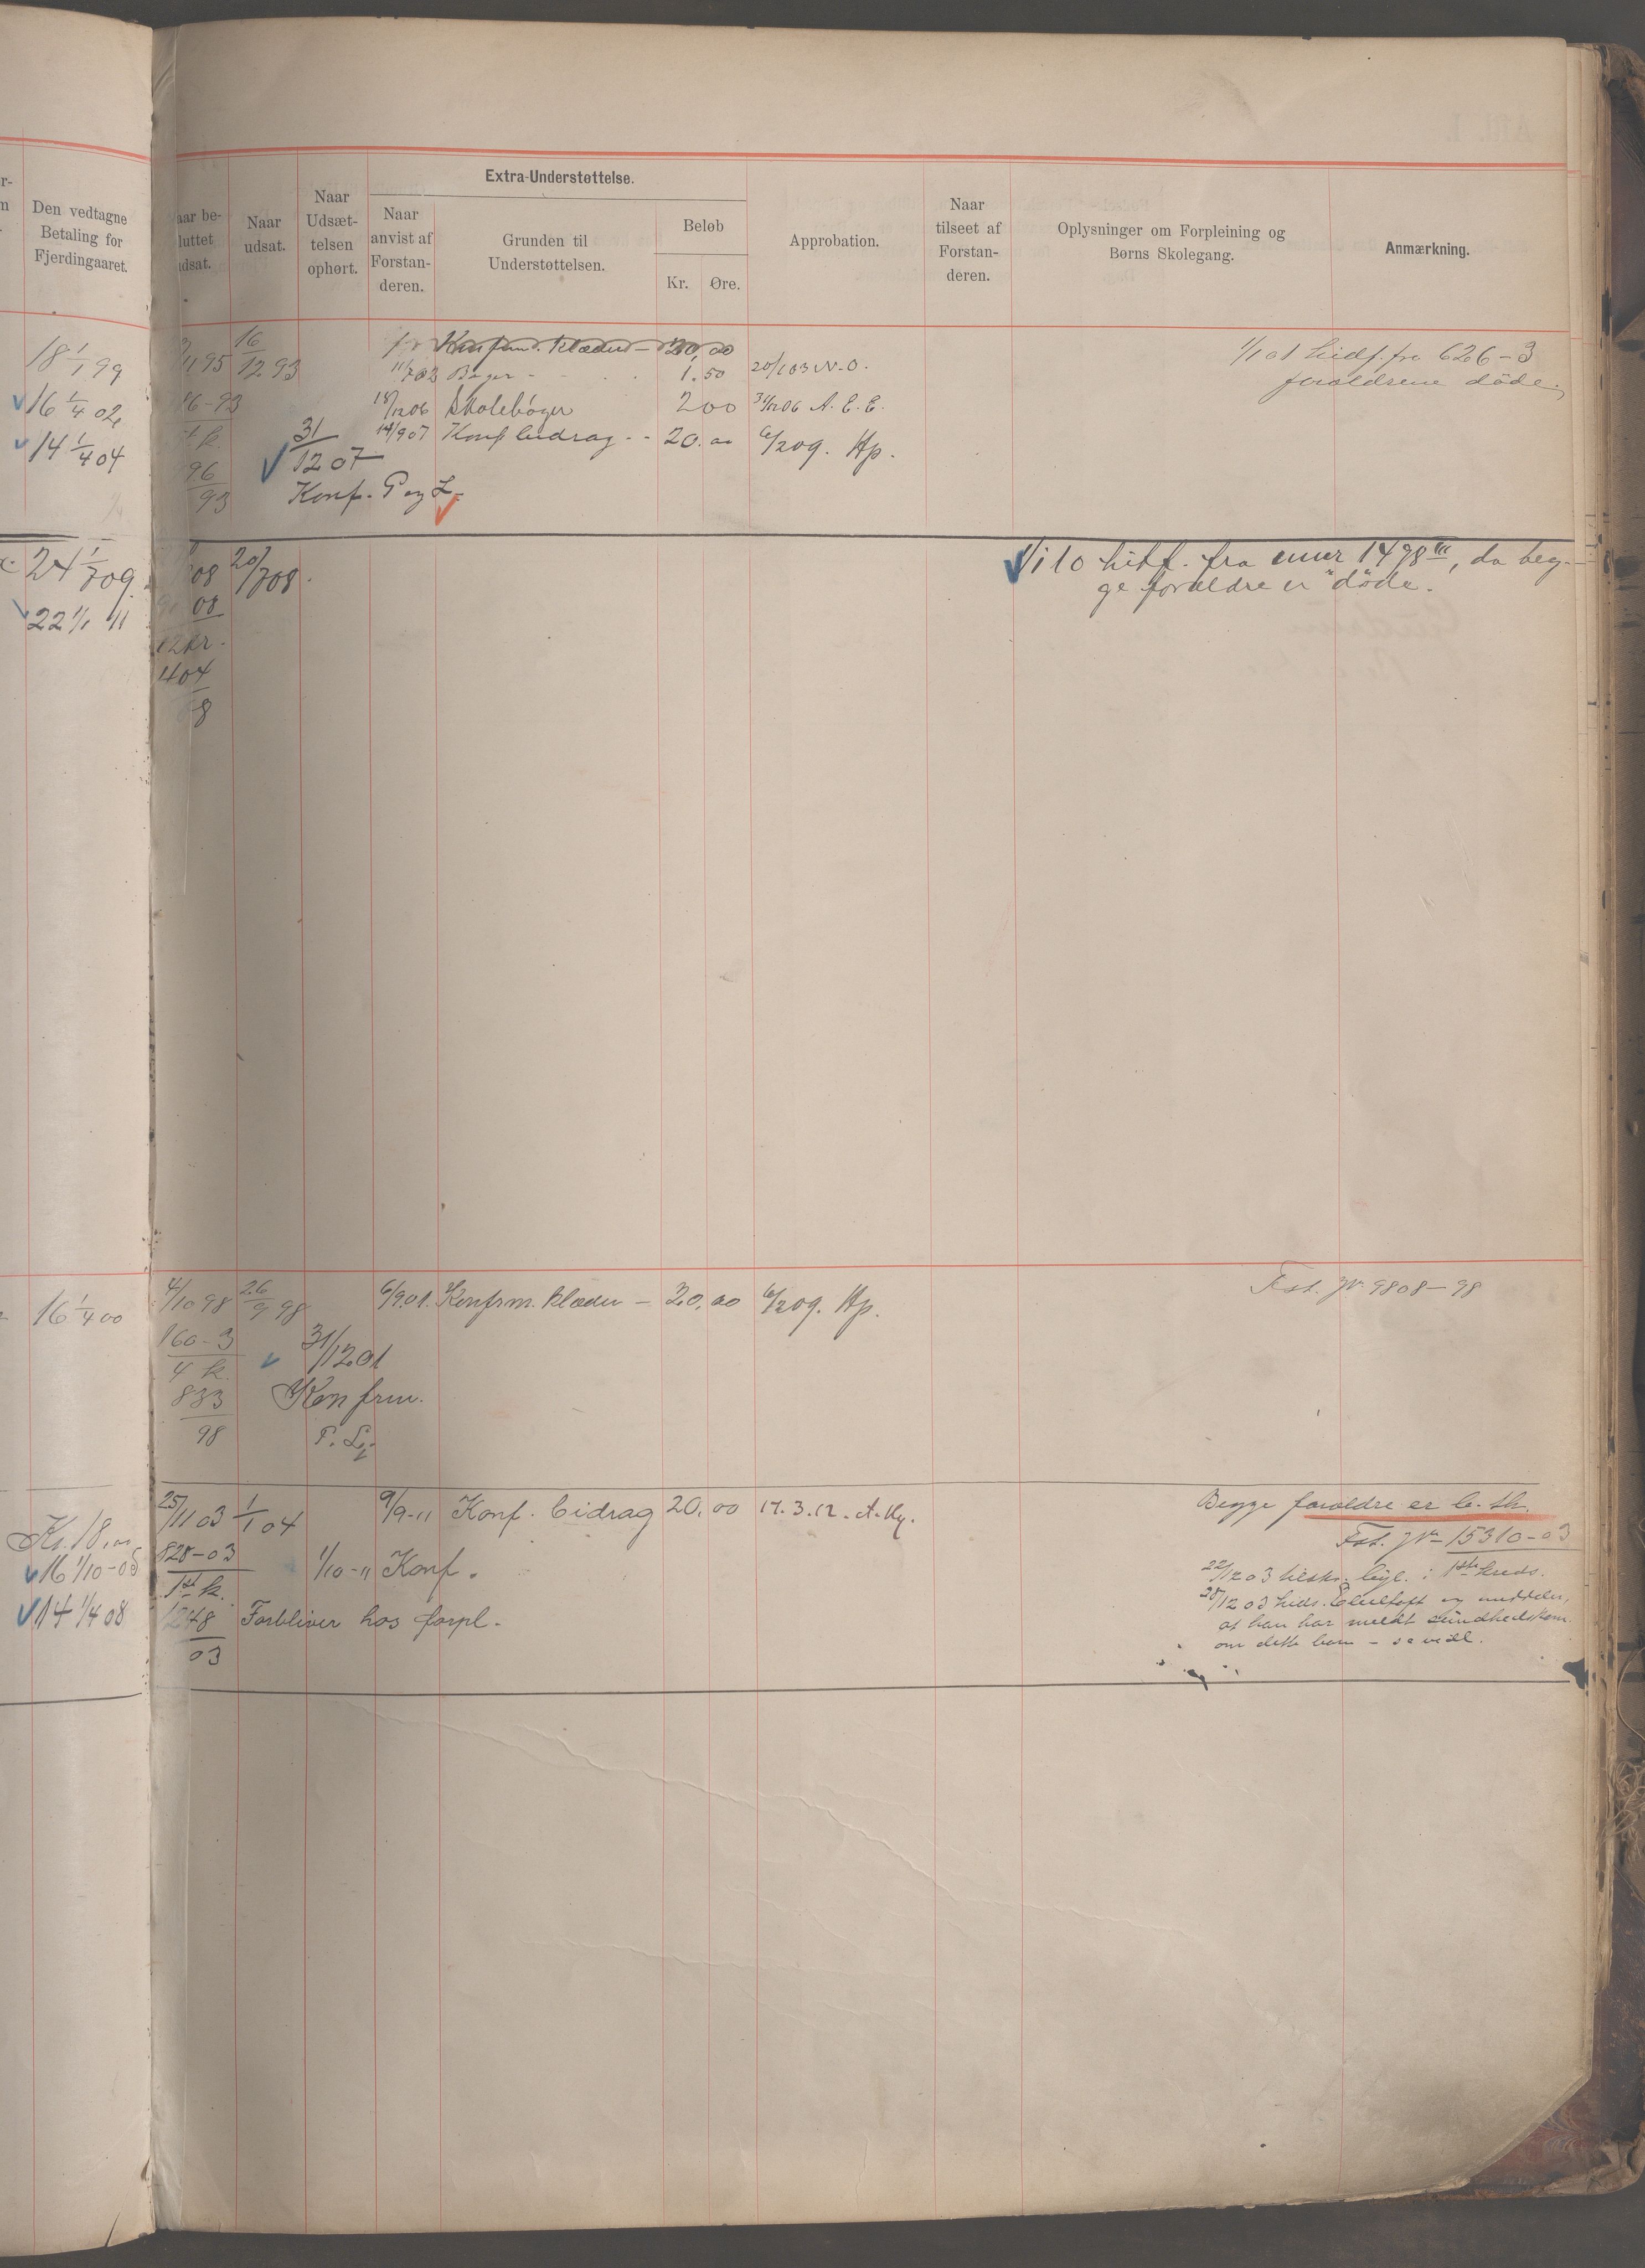 Den vedtagne
Betaling for
Fjerdingaaret.
18 1/1 99
16 1/4 02
14 1/4 04
24 1/7 09.
22 1/1 11
16 1/4 00
Kr. 18,00
16 1/10-05
14 1/4 08
Naar
udsat.
Naar
Udsæt-
telsen
ophørt.
Extra-Understøttelse.
Naar
anvist af
Forstan-
deren.
Grunden til
Understøttelsen.
Beløb
Kr. Øre.
Approbation.
Naar
tilseet af
Forstan-
deren.
Oplysninger om Forpleining og
Børns Skolegang.
Anmærkning.
11 95 16/12 93 Konfirm. klæder - 20,00
Bøger - 1.50 20/1 03 N.O.
1/1 01 hidf. fra 626-3
forældrene døde.
16-93 18/12 06 Skolebøger 2 00 31/12 06 A.E.E.
31/12 07 14/9 07 Konf bidrag - - 20.00 6/2 09. Hp.
96
93
Konf. P og L.
08 20/7 08.
08
12 kr.
404
8
1/1 10 hidf. fra enner 1498 III, da beg-
ge forældre er døde.
4/10 98 26/9 98 6/9 01. Konfrm. klæder - 20,00 6/2 09. Hp.
Fst. Jr 9808-98
160-3
4 k.
833
98
31/12 01
Konfrm.
P. L.
25/11 03 1/1 04 9/9-11 Konf. bidrag 20,00 17.3.12. A.Hg.
828-03
1st k.
1248
03
1/10-11 Konf.
Forbliver hos forpl.
Begge forældre er b. th.
Fst. Jr - 15310-03
22/12 03 tilskr. 1ste kreds.
28/12 03 og meddeler,
at han har meldt sundhedskom.
om dette barn -